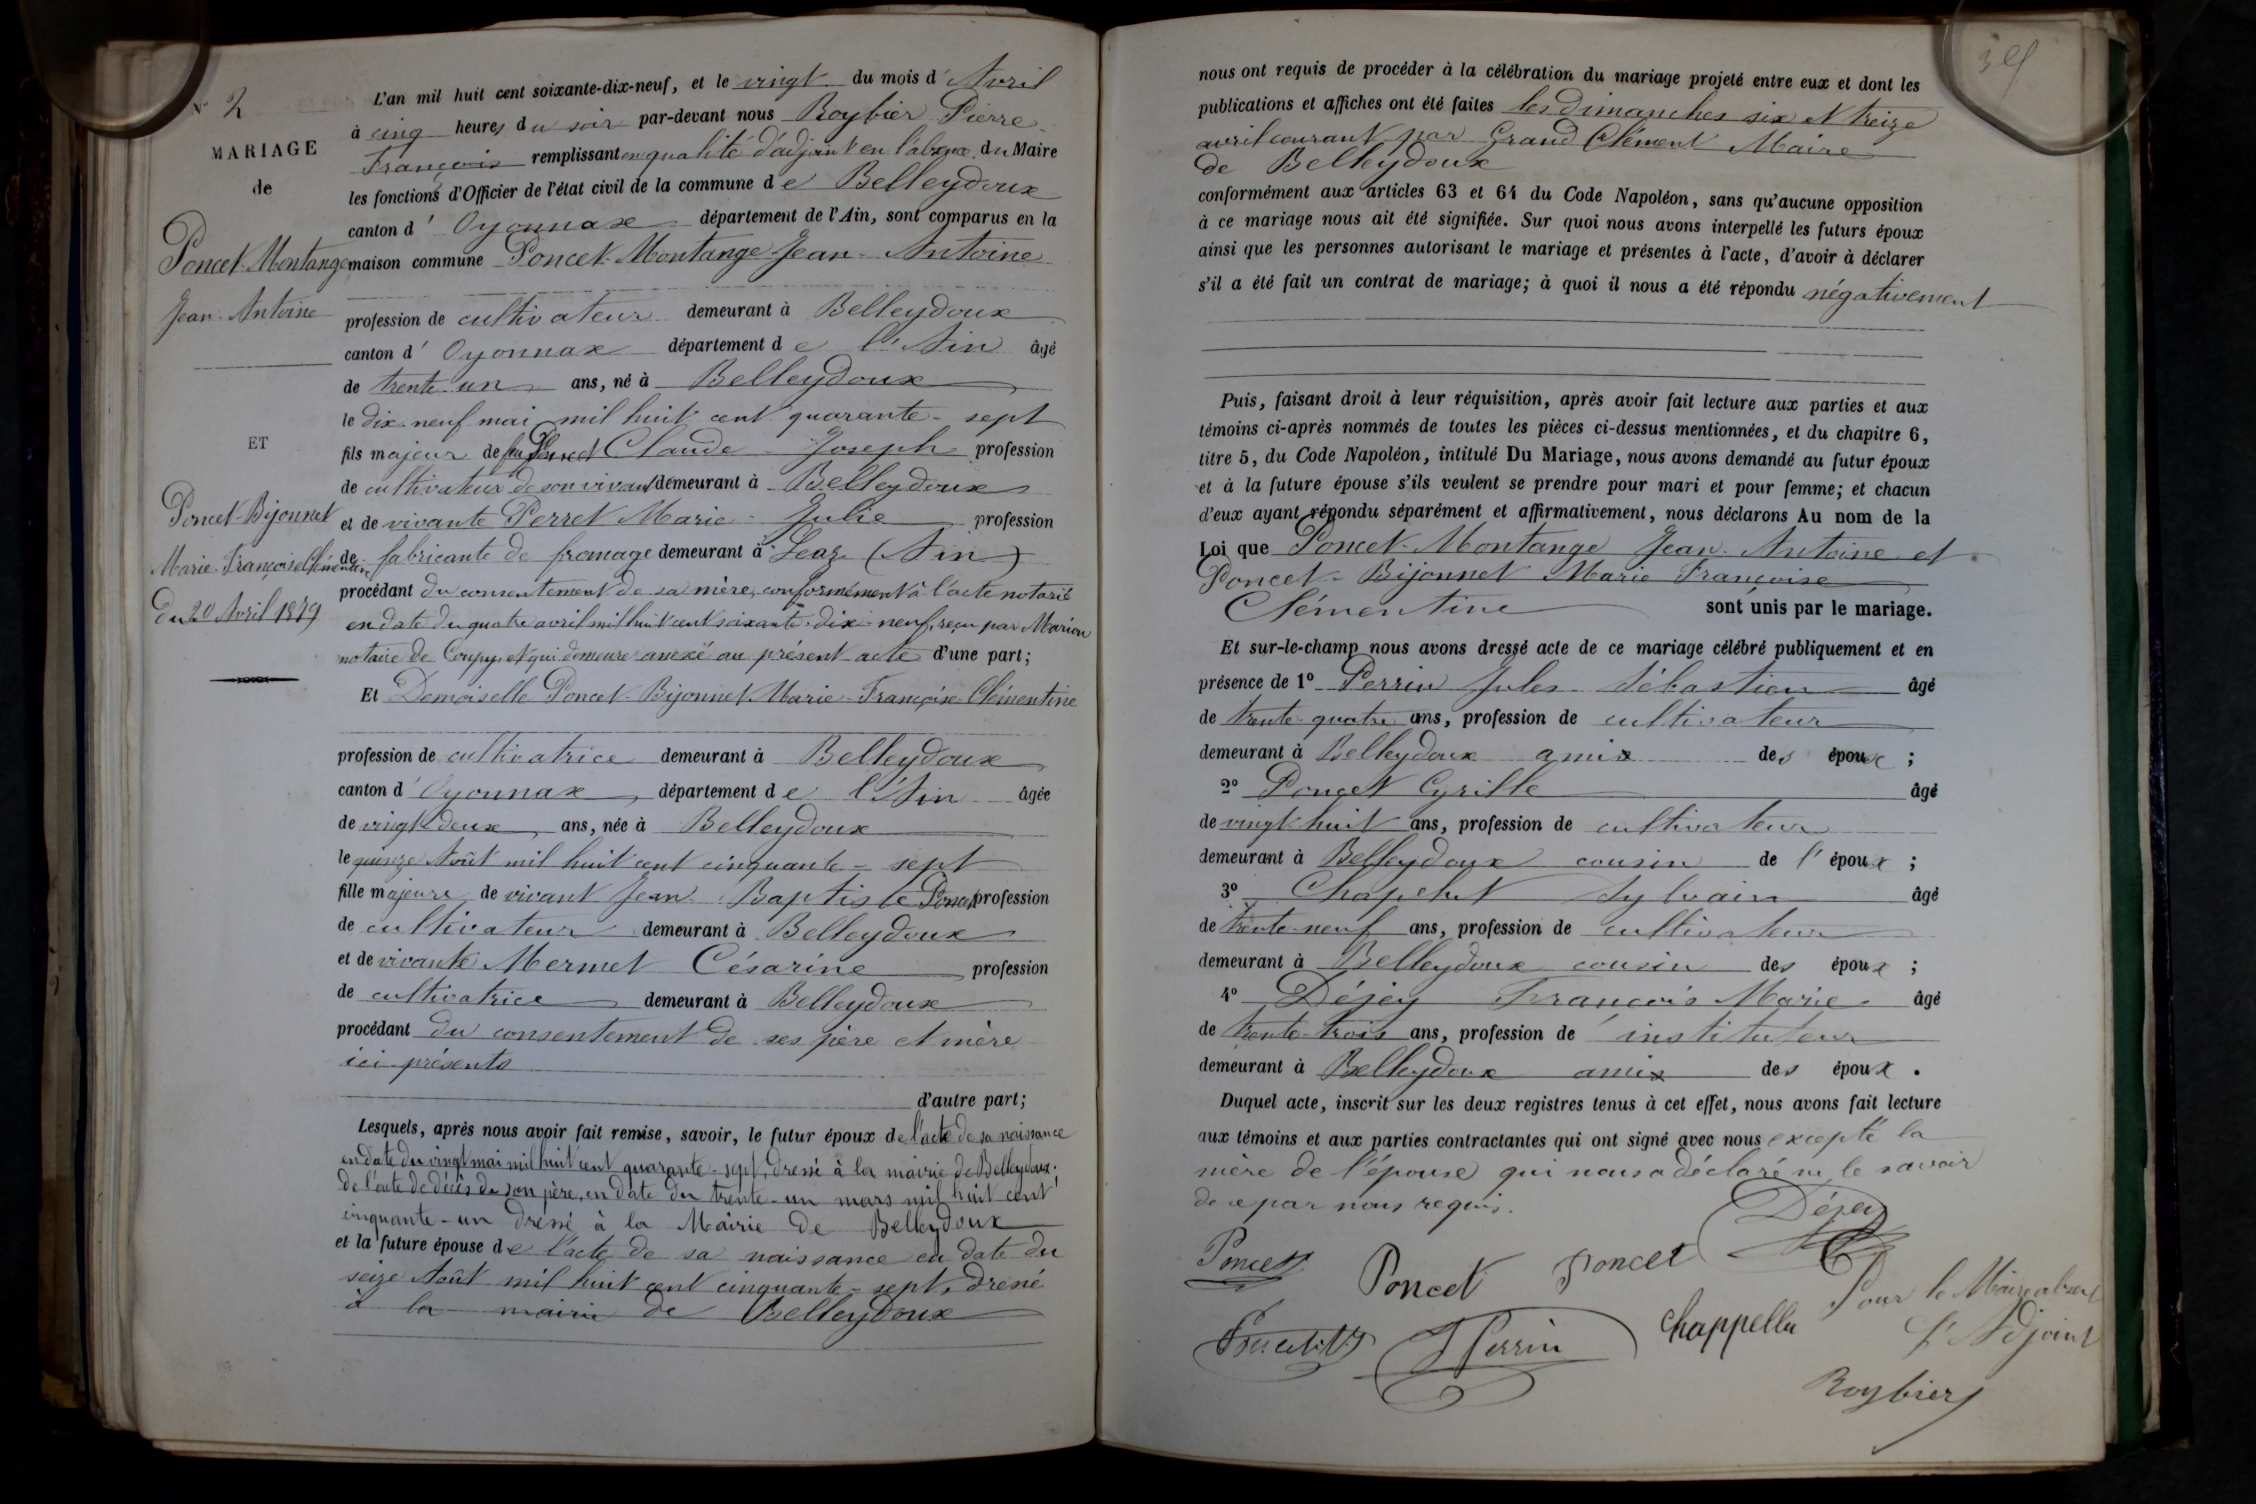 N° 2
MARIAGE
de
Poncet-Montange
Jean-Antoine
ET
Poncet-Bijonnet
Marie-Françoise Clémentine
Du 20 Avril 1879
L'an mil huit cent soixante-dix-neuf, et le vingt du mois d'Avril
à cinq heures du soir par-devant nous Roybier Pierre
François remplissant en qualité d'adjoint en l'absence du Maire
les fonctions d'Officier de l'état civil de la commune de Belleydoux
canton d'Oyonnax département de l'Ain, sont comparus en la
maison commune Poncet-Montange Jean-Antoine
profession de cultivateur demeurant à Belleydoux
canton d'Oyonnax département de l'Ain âgé
de trente un ans, né à Belleydoux
le dix-neuf mai mil huit cent quarante-sept
fils majeur de feu Poncet Claude Joseph profession
de cultivateur de son vivant demeurant à Belleydoux
et de vivante Perret Marie-Julie profession
de fabricante de fromage demeurant à Leaz (Ain)
procédant du consentement de sa mère, conformément à l'acte notarié
en date du quatre avril mil huit cent soixante-dix-neuf, reçu par Marion
notaire de Coupy, et qui demeure anexé au présent acte d'une part;
Et Demoiselle Poncet-Bijonnet Marie-Françoise Clémentine
profession de cultivatrice demeurant à Belleydoux
canton d'Oyonnax, département de l'Ain âgée
de vingt deux ans, née à Belleydoux
le quinze Août mil huit cent cinquante-sept
fille majeure de vivant Jean Baptiste Poncet profession
de cultivateur demeurant à Belleydoux
et de vivante Mermet Césarine profession
de cultivatrice demeurant à Belleydoux
procédant du consentement de ses père et mère
ici présents
d'autre part;
Lesquels, après nous avoir fait remise, savoir, le futur époux de l'acte de sa naissance
en date du vingt mai mil huit cent quarante-sept, dressé à la mairie de Belleydoux;
de l'acte de décès de son père, en date du trente-un mars mil huit cent
cinquante-un dressé à la Mairie de Belleydoux
et la future épouse de l'acte de sa naissance en date du
seize Août mil huit cent cinquante-sept, dressé
à la mairie de Belleydoux
nous ont requis de procéder à la célébration du mariage projeté entre eux et dont les
publications et affiches ont été faites les dimanches six et treize
avril courant par Grand Clément Maire
de Belleydoux
conformément aux articles 63 et 64 du Code Napoléon, sans qu'aucune opposition
à ce mariage nous ait été signifiée. Sur quoi nous avons interpellé les futurs époux
ainsi que les personnes autorisant le mariage et présentes à l'acte, d'avoir à déclarer
s'il a été fait un contrat de mariage; à quoi il nous a été répondu négativement
Puis, faisant droit à leur réquisition, après avoir fait lecture aux parties et aux
témoins ci-après nommés de toutes les pièces ci-dessus mentionnées, et du chapitre 6,
titre 5, du Code Napoléon, intitulé Du Mariage, nous avons demandé au futur époux
et à la future épouse s'ils veulent se prendre pour mari et pour femme; et chacun
d'eux ayant répondu séparément et affirmativement, nous déclarons Au nom de la
Loi que Poncet-Montange Jean-Antoine et
Poncet-Bijonnet Marie Françoise
Clémentine sont unis par le mariage.
Et sur-le-champ nous avons dressé acte de ce mariage célébré publiquement et en
présence de 1° Perrin Jules Sébastien âgé
de trente-quatre ans, profession de cultivateur
demeurant à Belleydoux ami des époux;
2° Poncet Cyrille âgé
de vingt huit ans, profession de cultivateur
demeurant à Belleydoux cousin de l'époux;
3° Chapelut Sylvain âgé
de trente-neuf ans, profession de cultivateur
demeurant à Belleydoux cousin des époux;
4° Déjey François Marie âgé
de trente-trois ans, profession de instituteur
demeurant à Belleydoux ami des époux.
Duquel acte, inscrit sur les deux registres tenus à cet effet, nous avons fait lecture
aux témoins et aux parties contractantes qui ont signé avec nous excepté la
mère de l'épouse qui nous a déclaré ne le savoir
de ce par nous requis.
Déjey
Poncet
Poncet
Poncet
Pour le Maire absent
l'Adjoint
Perrin
Roybier